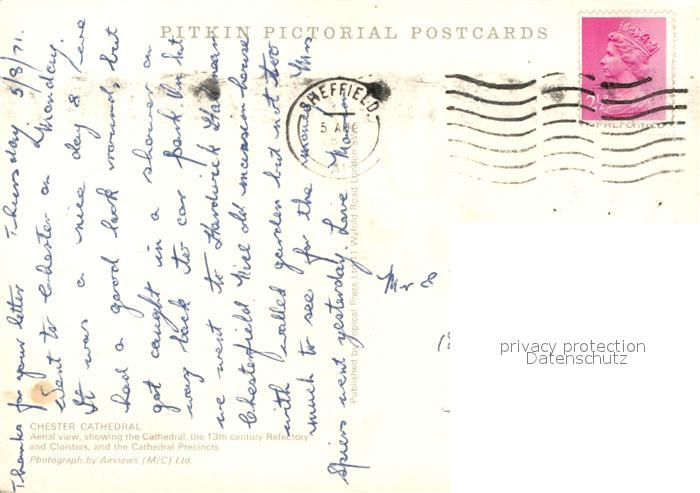 PITKIN PICTORIAL POSTCARDS
Thursday 5/8/71.
Thanks for your letter
Went to Chester on Monday.
It was a nice day & we
had a good look round, but
got caught in a shower on
way back to car park. Sun
we went to Hardwick Hall near
Chesterfield. Nice old mansion house
with walled garden but not too
much to see for the money. Mrs
Spiers went yesterday. Love
Mr &
SHEFFIELD
5 AUG
2½P
CHESTER CATHEDRAL
Aerial view, showing the Cathedral, the 13th century Refectory
and Cloisters, and the Cathedral Precincts.
Photograph by Airviews (M/C) Ltd.
Published by Topical Press Ltd 11 Wyfold Road London SW
privacy protection
Datenschutz